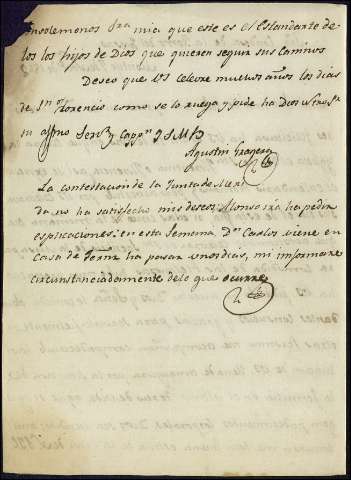 Consolemonos Sra mia que este es el Estandarte de
los los hijos de Dios que quieren seguir sus Caminos
Deseo que Vs celevre muchos años los dias
de Sn Florencio como se lo ruega y pide ha Dios Ntro Sr
su affmo Servr y Cappn Q S M B
Agustin Grajera
La contestacion de la Junta de Meri
da no ha satisfecho mis deseos, Alonso ira ha pedir
esplicaciones: en esta Semana Dn Carlos viene en
Casa de ha pasar unos dias, mi informare
circunstanciadamente de lo que ocurre